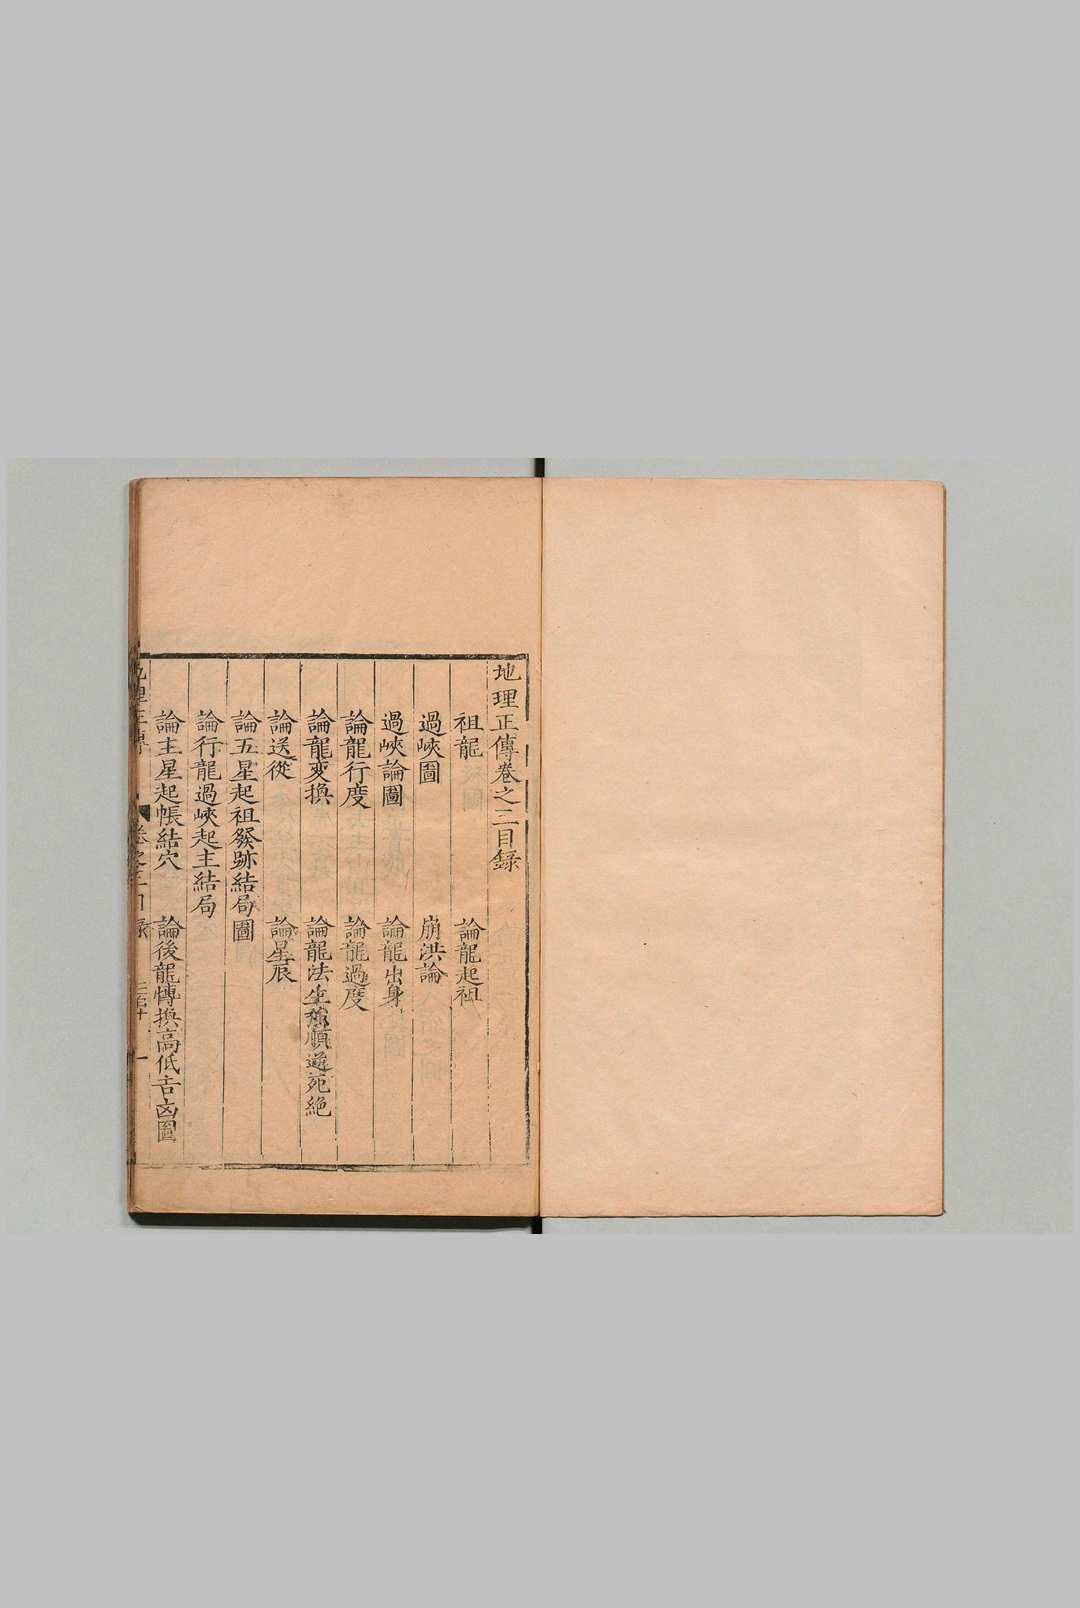 地理正傳卷之三目録
祖龍　論龍起祖
過峽圖　崩洪論
過峽論圖　論龍出身
論龍行度　論龍過度
論龍変換　論龍法生孫順逆死絶
論送從　論星辰
論五星起祖發跡結局圖
論行龍過峽起主結局
論主星起帳結穴　論後龍轉換高低吉凶圖
地理正傳　卷之三目録　一